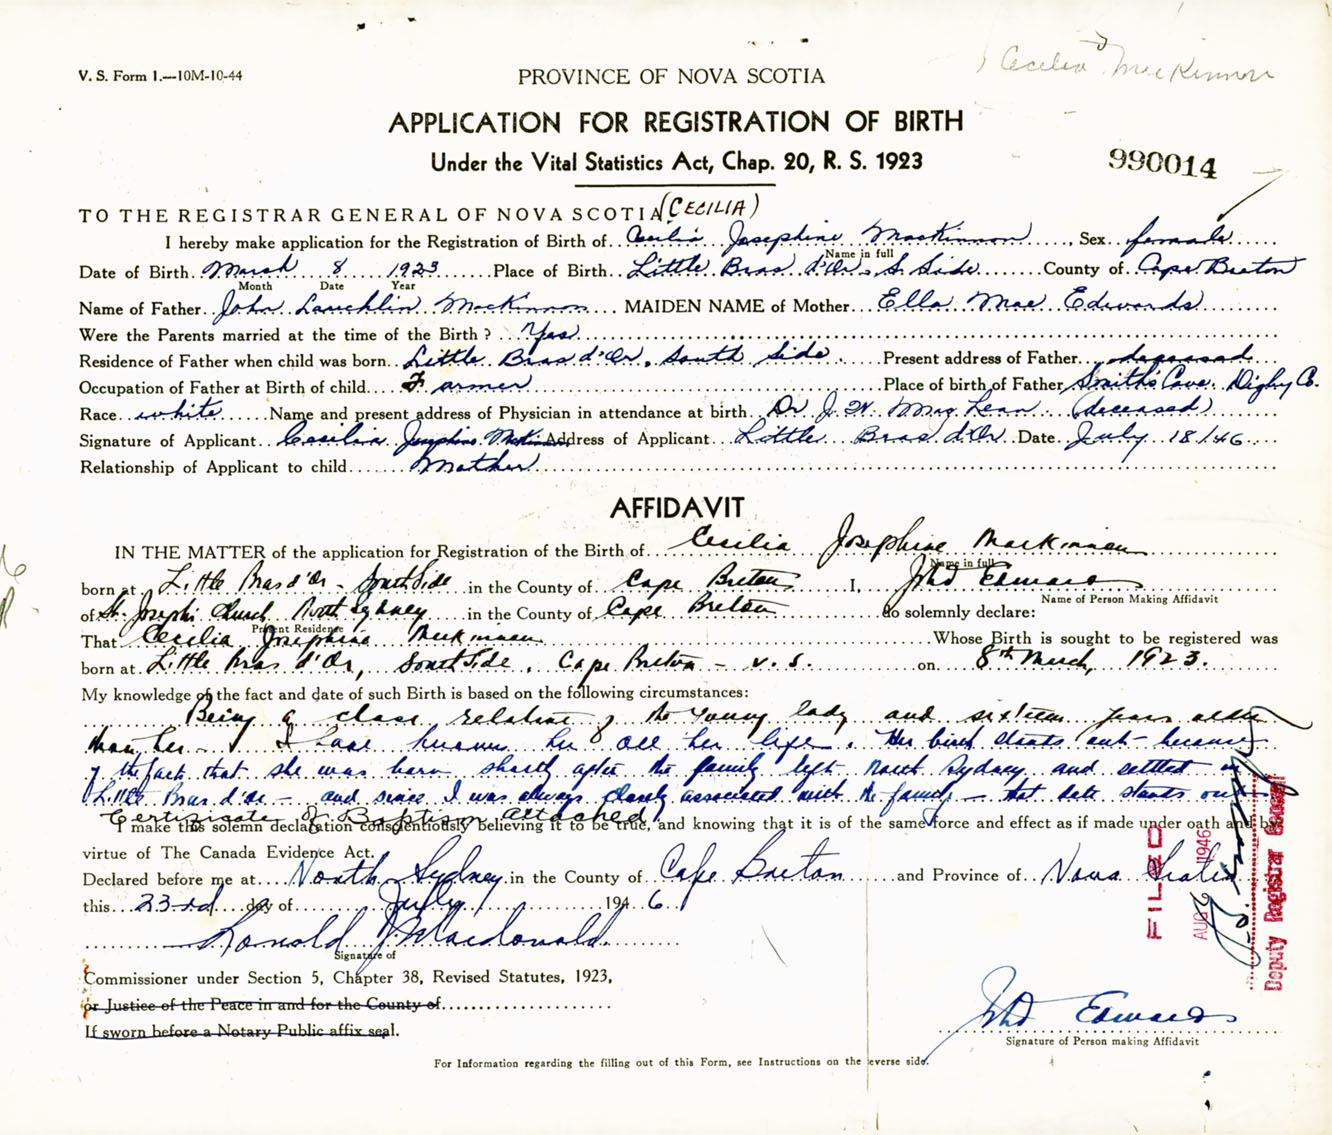 Cecilia MacKinnon
V. S. Form 1.—10M-10-44
PROVINCE OF NOVA SCOTIA
APPLICATION FOR REGISTRATION OF BIRTH
Under the Vital Statistics Act, Chap. 20, R. S. 1923
990014
TO THE REGISTRAR GENERAL OF NOVA SCOTIA (CECILIA)
I hereby make application for the Registration of Birth of Cecilia Josephine MacKinnon, Sex female
Name in full
Date of Birth March 8 1923 Place of Birth Little Bras d'Or, S. Side County of Cape Breton
Month Date Year
Name of Father John Lauchlin MacKinnon MAIDEN NAME of Mother Ella Mae Edwards
Were the Parents married at the time of the Birth? Yes
Residence of Father when child was born Little Bras d'Or, South Side Present address of Father deceased
Occupation of Father at Birth of child Farmer Place of birth of Father Smith's Cove, Digby Co.
Race white Name and present address of Physician in attendance at birth Dr J. W. MacLean (deceased)
Signature of Applicant Cecilia Josephine MacKinnon Address of Applicant Little Bras d'Or Date July 18/46
Relationship of Applicant to child Mother
AFFIDAVIT
IN THE MATTER of the application for Registration of the Birth of Cecilia Josephine MacKinnon
Name in full
born at Little Bras d'Or - South Side in the County of Cape Breton I, Edwards
Name of Person Making Affidavit
of St. Joseph's Church North Sydney in the County of Cape Breton do solemnly declare:
Present Residence
That Cecilia Josephine MacKinnon Whose Birth is sought to be registered was
born at Little Bras d'Or, South Side, Cape Breton - N. S. on 8th March, 1923.
My knowledge of the fact and date of such Birth is based on the following circumstances:
Being a close relative of the young lady and sixteen years older
than her - I have known her all her life. Her birth stands out because
of the fact that she was born shortly after the family left North Sydney and settled in
Little Bras d'Or - and since I was always closely associated with the family - that date stands out.
Certificate of Baptism attached
I make this solemn declaration conscientiously believing it to be true, and knowing that it is of the same force and effect as if made under oath and by
virtue of The Canada Evidence Act.
Declared before me at North Sydney in the County of Cape Breton and Province of Nova Scotia
this 23rd day of July 1946
Ronald J. Macdonald
Signature of
Commissioner under Section 5, Chapter 38, Revised Statutes, 1923,
or Justice of the Peace in and for the County of
If sworn before a Notary Public affix seal.
Edwards
Signature of Person making Affidavit
For Information regarding the filling out of this Form, see Instructions on the reverse side.
FILED
AUG 2 1946
Deputy Registrar General